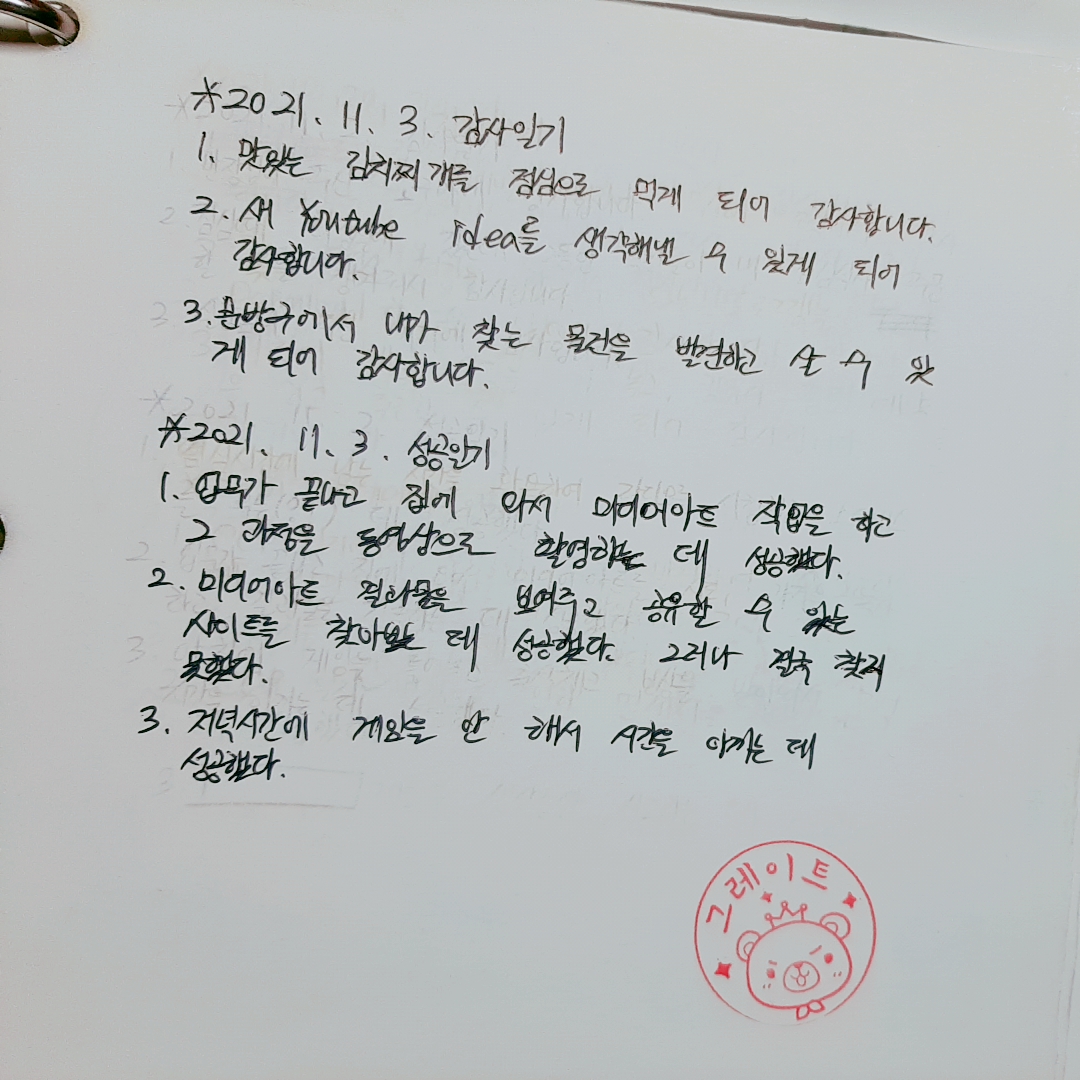 *2021. 11. 3. 감사일기
1. 맛있는 김치찌개를 점심으로 먹게 되어 감사합니다.
2. 새 Youtube idea를 생각해낼 수 있게 되어
감사합니다.
3. 문방구에서 내가 찾는 물건을 발견하고 살 수 있
게 되어 감사합니다.
*2021. 11. 3. 성공일기
1. 업무가 끝나고 집에 와서 미디어아트 작업을 하고
그 과정을 동영상으로 촬영하는 데 성공했다.
2. 미디어아트 결과물을 보여주고 공유할 수 있는
사이트를 찾아보는 데 성공했다. 그러나 결국 찾지
못했다.
3. 저녁시간에 게임을 안 해서 시간을 아끼는 데
성공했다.
그레이트